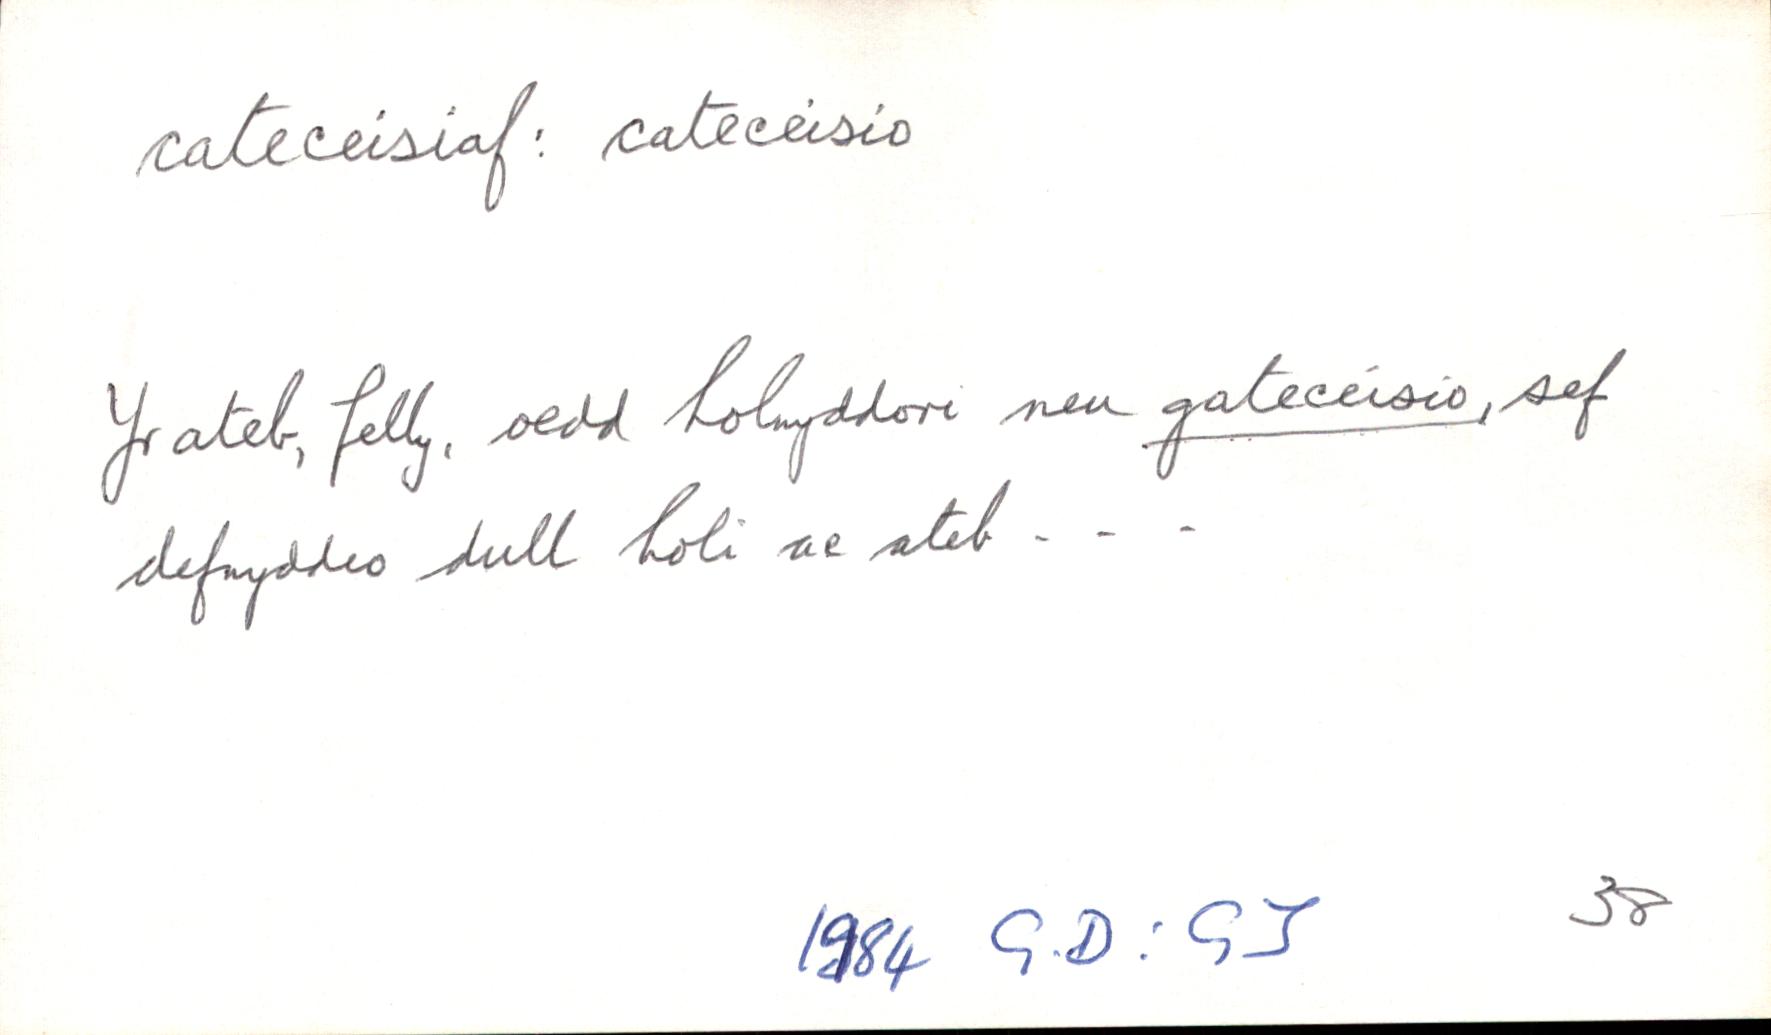 cateceisiaf: cateceisio
Yr ateb, felly, oedd holwyddori neu gateceisio, sef
defnyddio dull holi ac ateb - - -
1984 G.D: GJ 38